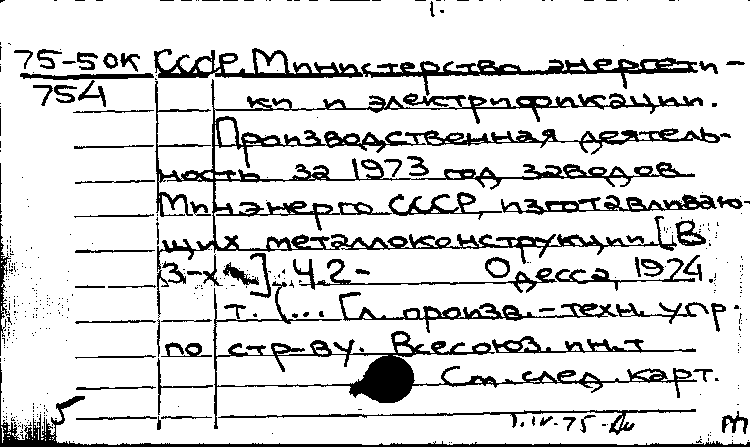 1.
75-50к СССР. Министерство энергети-
754 ки и электрификации.
Производственная деятель-
ность за 1973 год заводов
Минэнерго СССР, изготавливаю-
щих металлоконструкции. [В
3-х ]. Ч.2- Одесса, 1974.
т. (... Гл. произв.-техн. упр.
по стр-ву. Всесоюз. ин-т
См. след. карт.
5 1.IV-75- m